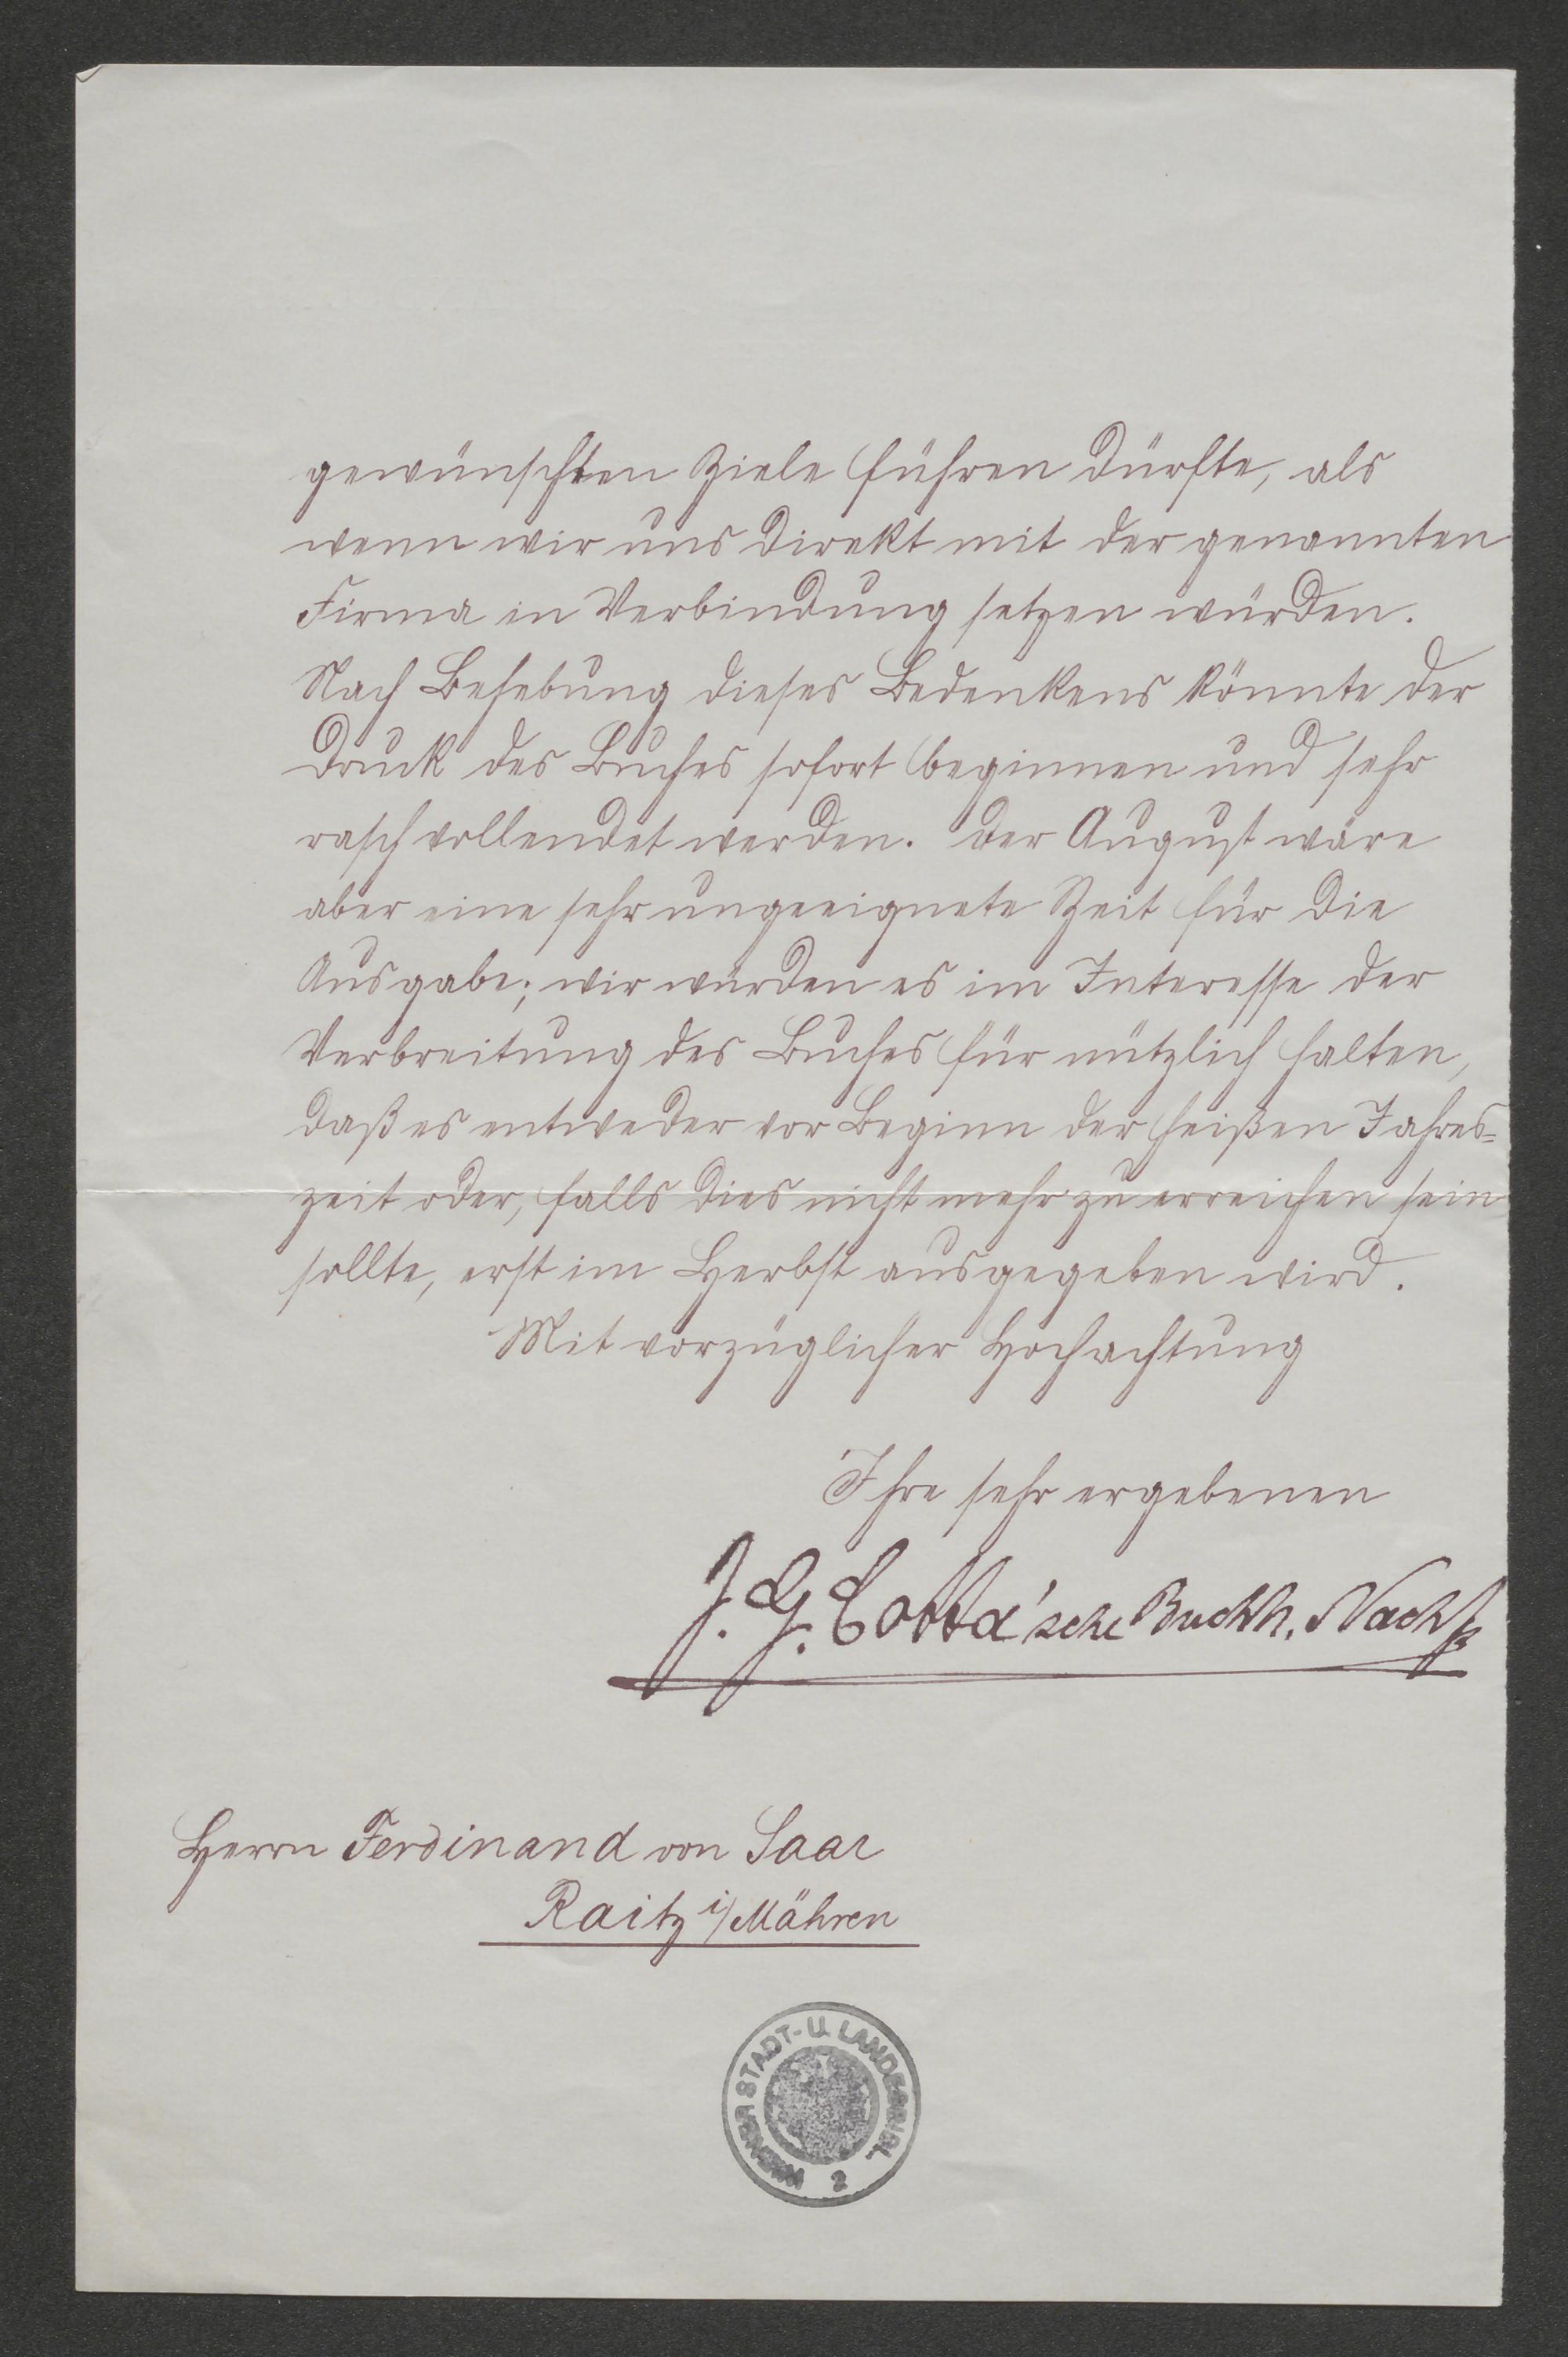 gewünschten Ziele führen dürfte, als
wenn wir uns direkt mit der genannten
Firma in Verbindung setzen würden.
Nach Behebung dieses Bedenkens könnte der
Druck des Buches sofort beginnen und sehr
rasch vollendet werden. Der August wäre
aber eine sehr ungeeignete Zeit für die
Ausgabe; wir würden es im Interesse der
Verbreitung des Buches für nützlich halten,
daß es entweder vor Beginn der heißen Jahres=
zeit oder, falls dies nicht mehr zu erreichen sein
sollte, erst im Herbst ausgegeben wird.
Mit vorzüglicher Hochachtung
Ihre sehr ergebenen
J. G. Cotta'sche Buchh. Nachf
Herrn Ferdinand von Saar
Raitz i/Mähren
WIENER STADT- U. LANDESBIBL.
2